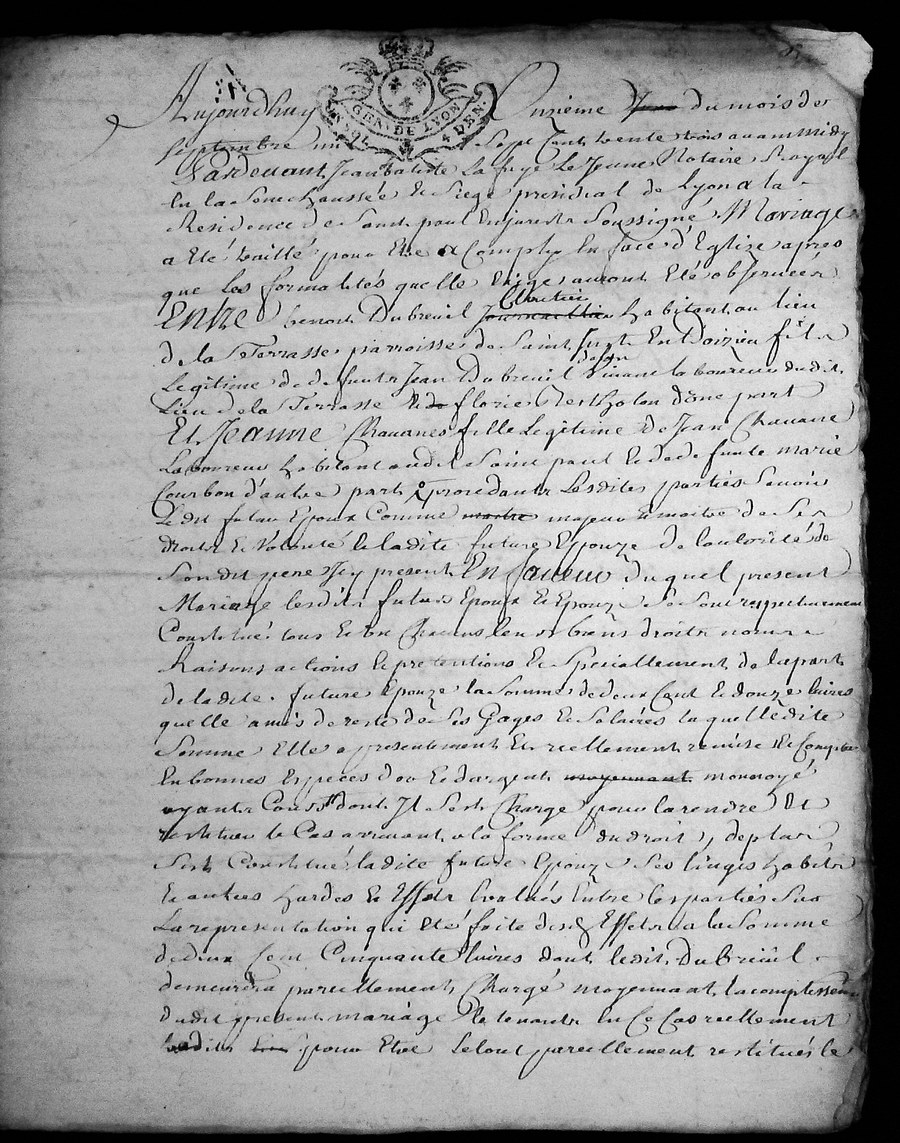 GEN. DE LYON
4 DEN.
Aujourdhuy Onzieme Jour du mois de
Septembre mil Sept Cent trente trois avant midy
Pardevant Jean batiste La fuye Le Jeune Notaire Royal
En la Senechaussée & Siege presidial de Lyon a la
Residence de Saint paul En Jarest Soussigné Mariage
a Eté traitté pour Etre acomply En face d'Eglise apres
que Les formalités quelle Exige auront Eté observéés
Entre benoit Dubreuil Cloutier habitant au lieu
de la Terrasse parroisse de Saint Just En Doizieu fils
Legitime de defunt Jean Dubreuil vivant laboureur dudit
Lieu de la Terrasse & de florie Bertholon d'une part
Et Jeanne Chavanes fille Legitime de Jean Chavane
Laboureur habitant audit Saint paul & de defunte marie
Courbon d'autre part procedants Lesdites parties Savoir
Ledit futur Epoux Comme maitre majeur & maitre de Ses
droits & volonté & ladite future Epouze de l'autorité de
Son dit pere Icy present En faveur duquel present
Mariage lesdits futurs Epoux & Epouze Se Sont respectivement
Constitué tous & un Chacuns leurs biens droits noms
Raisons actions & pretentions & Speciallement de la part
de ladite future Epouze la Somme de deux Cent & douze livres
quelle a mis de reste de Ses Gages & Salaires laquelledite
Somme Elle a presentement Et reellement remise & Comptée
En bonnes Especes d'or & d'argent moyennant monnoyé
ayants Cours dont Il Sest Chargé pour la rendre Et
restituer le Cas arrivant a la forme du droit, de plus
Sest Constitué ladite future Epouze Ses linges habits
& autres hardes & Effets Evalués Entre les parties Sur
La representation qui Eté faite desd. Effets a la Somme
de deux Cent Cinquante livres dont ledit Dubreüil
demeurera pareillement Chargé moyennant lacomplissement
dudit present mariage & tenants En Ce Cas reellement
pour Etre Le tout pareillement restitués le